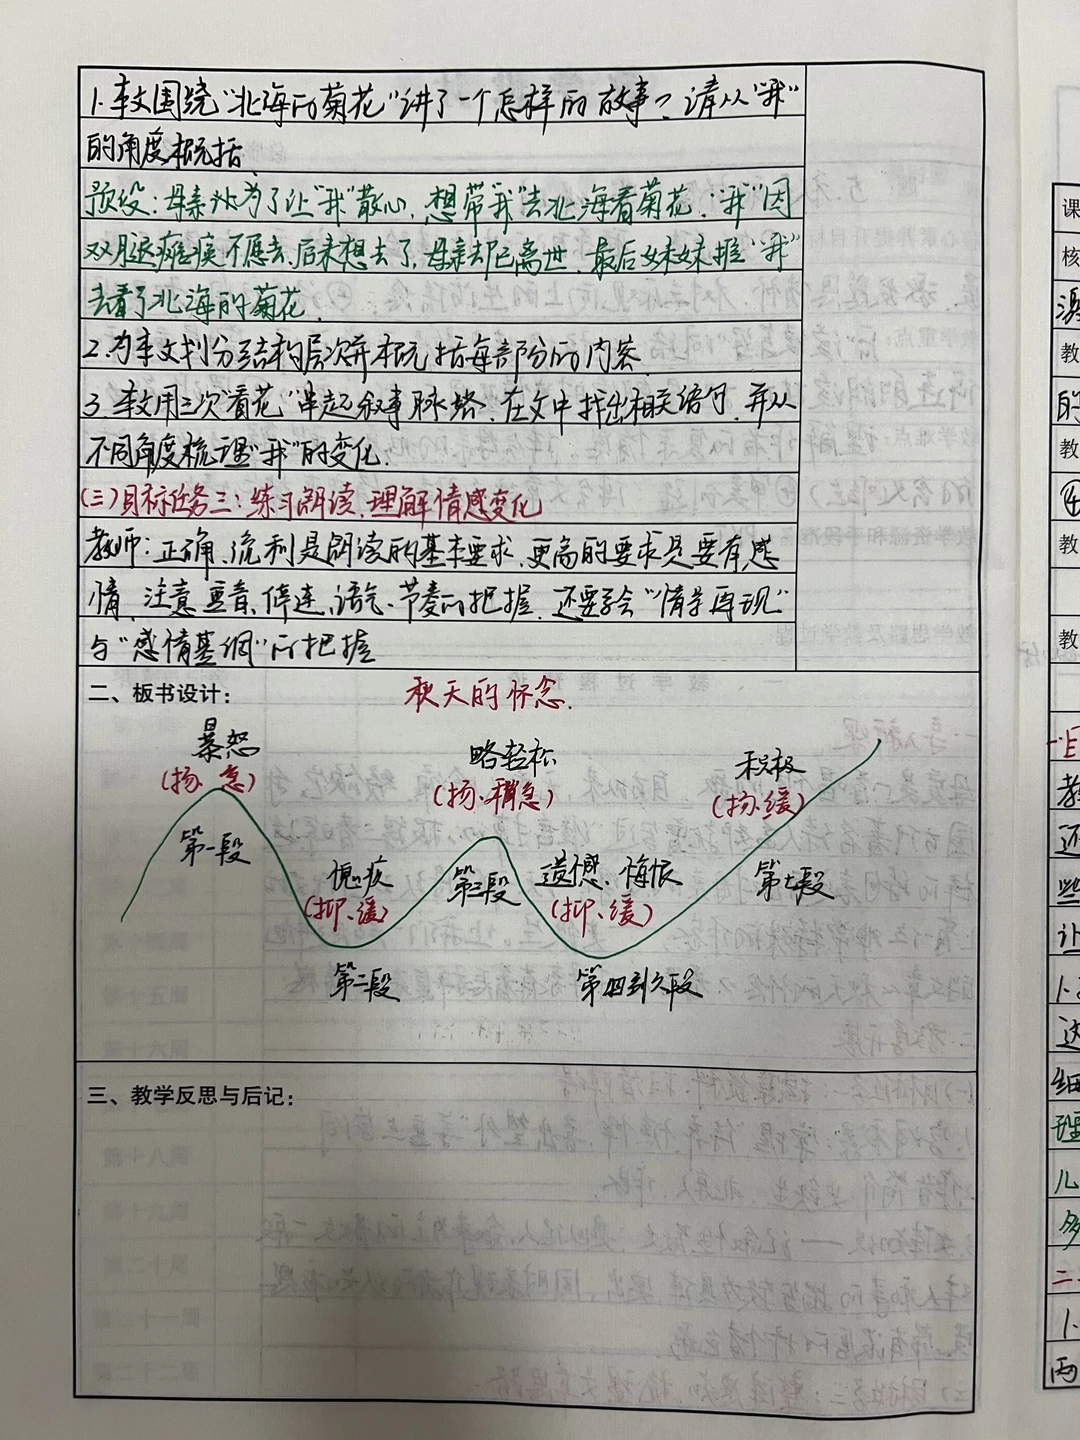 1.本文围绕"北海的菊花"讲了一个怎样的故事？请从"我"
的角度概括.
预设:母亲为了让"我"散心,想带"我"去北海看菊花."我"因
双腿瘫痪不愿去.后来想去了,母亲却已离世.最后妹妹推"我"
去看了北海的菊花.
2.为本文划分结构层次并概括每部分的内容.
3.本文用三次"看花"串起叙事脉络.在文中找出相关语句.并从
不同角度梳理"我"的变化.
(三)目标任务三:练习朗读.理解情感变化
教师:正确、流利是朗读的基本要求,更高的要求是要有感
情.注意重音、停连、语气、节奏的把握.还要学会"情景再现"
与"感情基调"的把握
二、板书设计:
秋天的怀念.
暴怒
(扬、急)
第一段
愧疚
(抑、缓)
第二段
略轻松
(扬、稍急)
第三段
遗憾、悔恨
(抑、缓)
第四到六段
积极
(扬、缓)
第七段
三、教学反思与后记:
课
核
教
的
教
④
教
教
教
还
些
让
1.
这
细
理
儿
多
二
1.
两